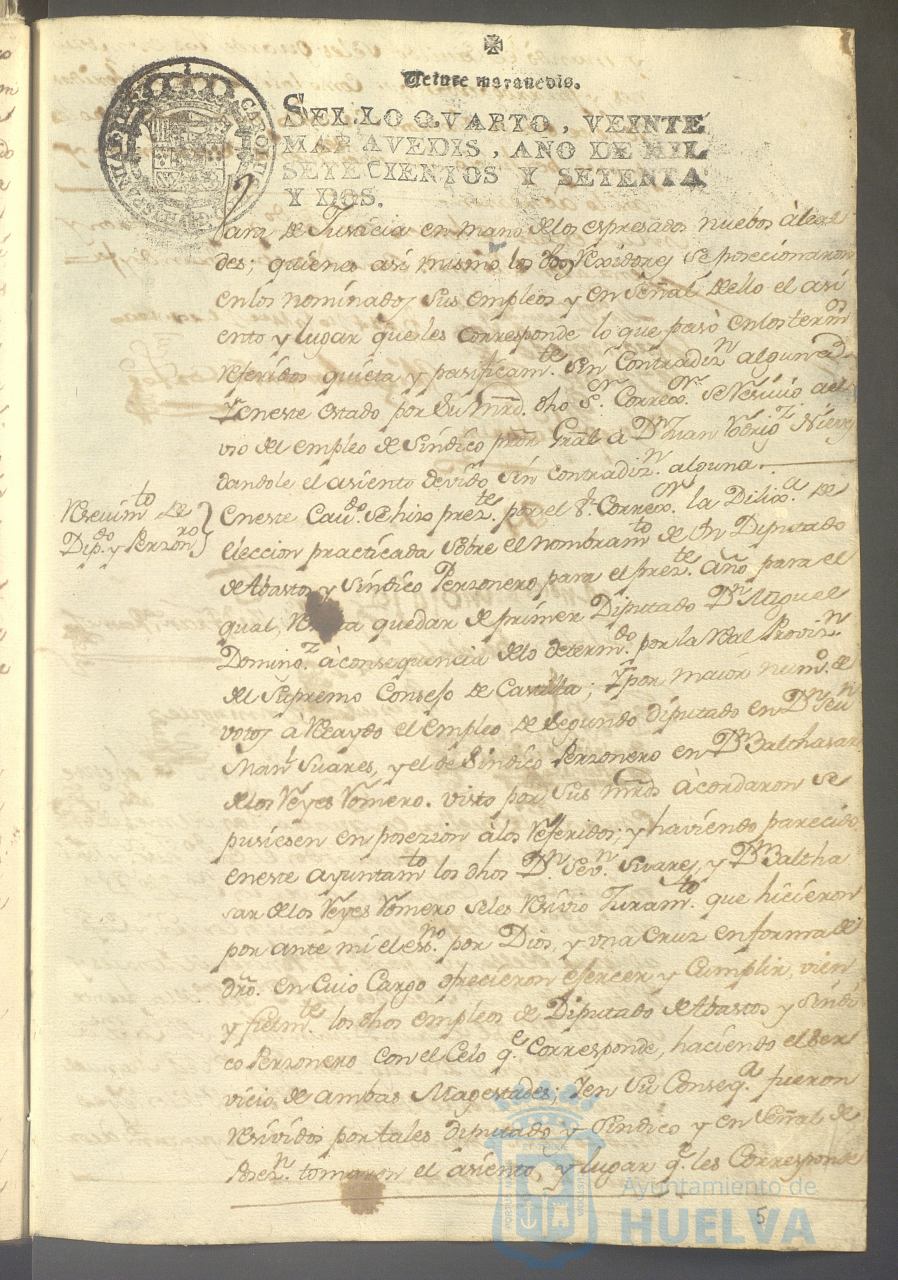 Veinte maravedis.
SELLO QVARTO, VEINTE
MARAVEDIS, AÑO DE MIL
SETECIENTOS Y SETENTA
Y DOS.
CAROLUS
Vara de Justicia en mano delos espresados nuebos àlcal
des; quienes asi mismo los dhos Rexidores se posecionaron
enlos nominados sus empleos y en Señal dello el asi
ento y lugar queles corresponde lo que pasò enlos termos
referidos quieta y pasificamte. sin contradizn alguna
Y eneste estado por su mrd. dho Sr. Correxor. se resivio al
vio del empleo de Síndico pror Gral a Dn Juan Rodrigz Nieves
dandole el asiento devido sin contradizn. alguna.
Resevimto de
Dipdo. y Perzonro
Eneste Cavdo. se hizo prezte. por el Sr. Correxor la Dilixa. de
eleccion practicada sobre el nombramto de Un Diputado
de Abastos y Síndico Perzonero para el prezte. año, para el
qual, quedar de primer Diputado Dn Miguel
Domingz. à consequencia delo determdo. por la Real Provizn
del Supremo Consejo de Castilla; Y por maior numo. de
votos à recaydo el empleo de Segundo diputado en Dn Sevn
Manl Suares, y el de Sindico Perzonero en Dn Balthasar
delos Reyes Romero. visto por sus mrds àcordaron se
pusiesen en posezion àlos Referidos; y haviendo parecido
eneste ayuntamto los dhos Dn. Sevn. Suares, y Dn Baltha
sar delos Reyes Romero seles resivio Juramto. que hicieron
por ante mi el essno. por Dios, y una Cruz enforma de
dro. en Cuio Cargo ofrecieron esercer y Cumplir, vien
y fielmte. los dhos empleos de Diputado de Abastos y Síndi
co Perzonero con el Celo qe. Corresponde, haciendo el ser
vicio de ambas Magestades; Y en su Conseqa. fueron
resividos por tales diputado y Sindico y en Señal de
Posen. tomaron el asiento, y lugar qe. les Corresponde
5
Ayuntamiento de
HUELVA